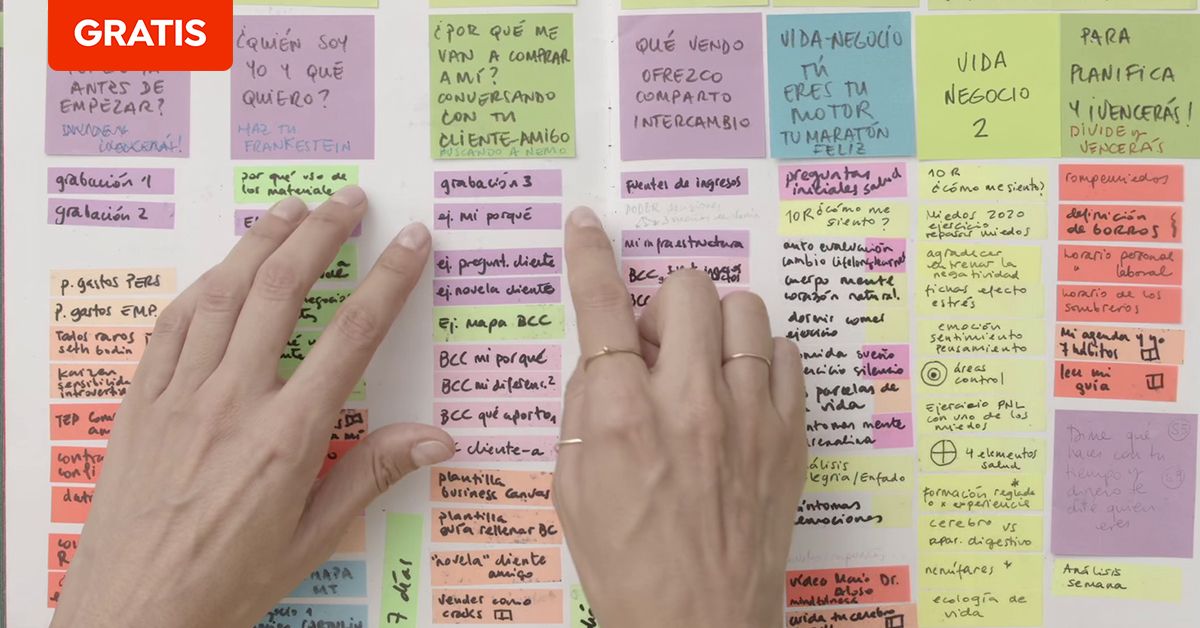 GRATIS
ANTES DE
EMPEZAR?
¿QUIÉN SOY
YO Y QUÉ
QUIERO?
HAZ TU
FRANKESTEIN
¿POR QUÉ ME
VAN A COMPRAR
A MÍ?
CONVERSANDO
CON TU
CLIENTE-AMIGO
BUSCANDO A NEMO
QUÉ VENDO
OFREZCO
COMPARTO
INTERCAMBIO
VIDA-NEGOCIO
TÚ
ERES TU
MOTOR
TU MARATÓN
FELIZ
VIDA
NEGOCIO
2
PARA
PLANIFICA
Y ¡VENCERÁS!
DIVIDE y
VENCERÁS
grabación 1
grabación 2
p. gastos PERS
p. gastos EMP.
Todos raros
seth Godin
Kaizen
sensibilida
introvertid
TED
por qué uso de
los materiale
MAPA
MT
7 días
grabación 3
ej. mi porqué
ej. pregunt. cliente
ej. novela cliente
Ej. mapa BCC
BCC mi porqué
BCC mi diferenc.2
BCC qué aporto
cliente-a
plantilla
business canvas
plantilla
guía rellenar BC
"novela" cliente
amigo
vender como
cracks
fuentes de ingresos
mi infraestructura
BCC
BCC
preguntas
iniciales salud
10 R ¿cómo me
siento?
auto evaluación
cambio
cuerpo mente
corazón natural.
dormir comer
ejercicio
sueño
ejercicio silencio
parcelas de
vida
mente
Análisis
alegría/Enfado
síntomas
emociones
video Mario Dr.
Alonso
mindfulness
cuida tu cerebro
10 R
¿cómo me siento?
Miedos 2020
ejercicio
repasar miedos
agradecer
entrenar la
negatividad
fichas efecto
estrés
emoción
sentimiento
pensamiento
áreas
control
Ejercicio PNL
con uno de los
miedos
4 elementos
salud
formación reglada
o x experiencia
cerebro vs
apar. digestivo
nenúfares *
ecología de
vida
rompemiedos
definición
de BORROS
horario personal
" laboral
horario de los
sombreros
Mi agenda y yo
7 hábitos
leer mi
guía
Dime qué
haces con tu
tiempo y
dinero te
diré quién
eres
Análisis
semana